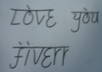 Love you
fiverr